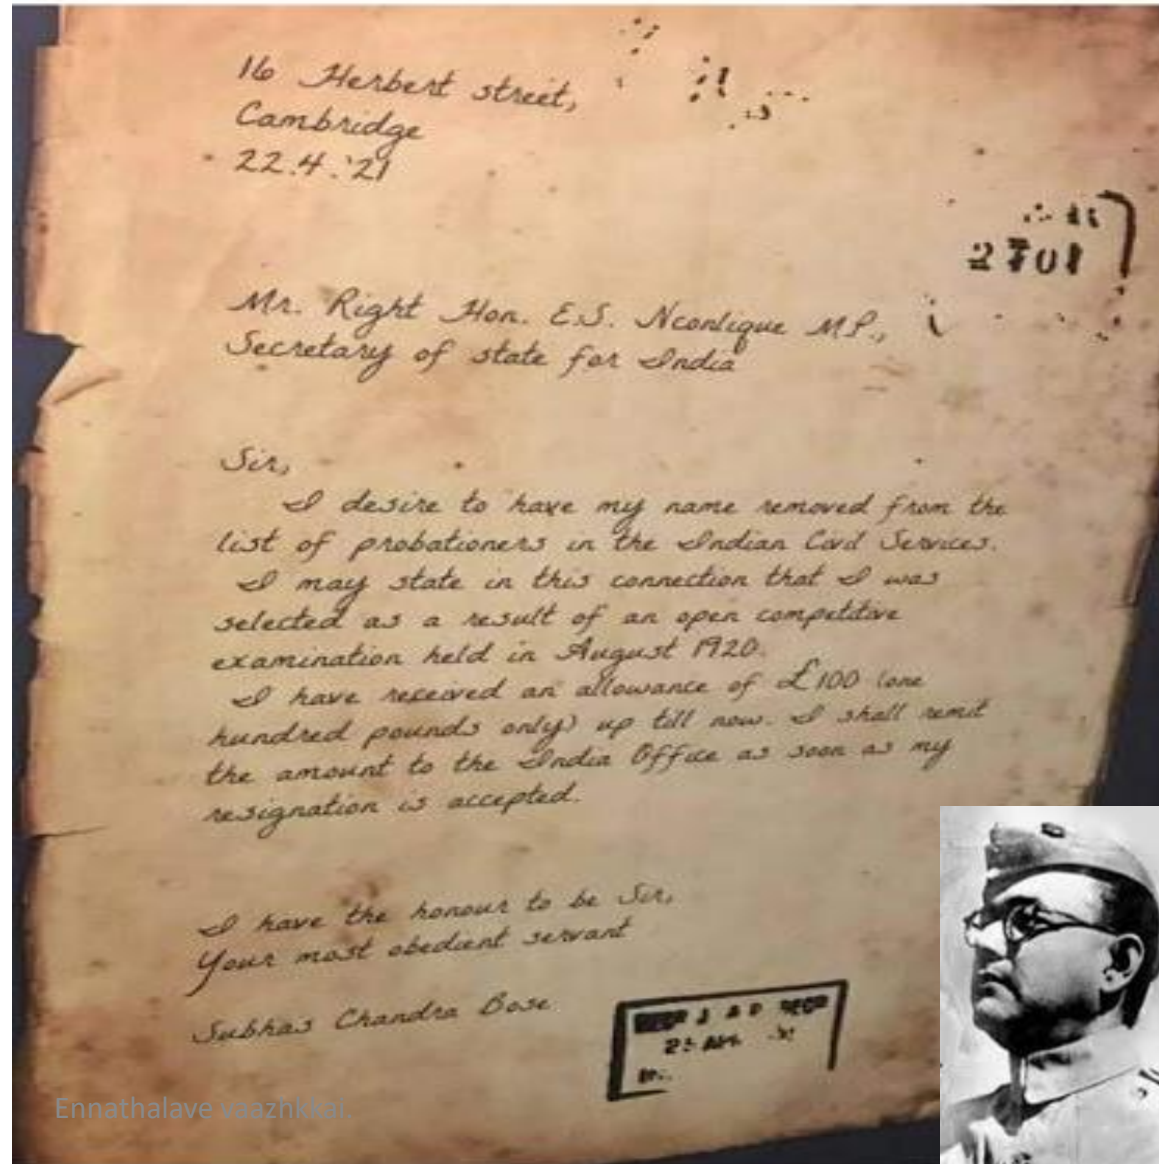 16 Herbert street,
Cambridge
22.4.'21
2701
Mr. Right Hon. E.S. Nconlique M.P.,
Secretary of state for India
Sir,
I desire to have my name removed from the
list of probationers in the Indian Covd Services.
I may state in this connection that I was
selected as a result of an open competitive
examination held in August 1920.
I have received an allowance of £100 (one
hundred pounds only) up till now. I shall remit
the amount to the India Office as soon as my
resignation is accepted.
I have the honour to be Sir,
Your most obedient servant
Subhas Chandra Bose
Ennathalave vaazhkkai